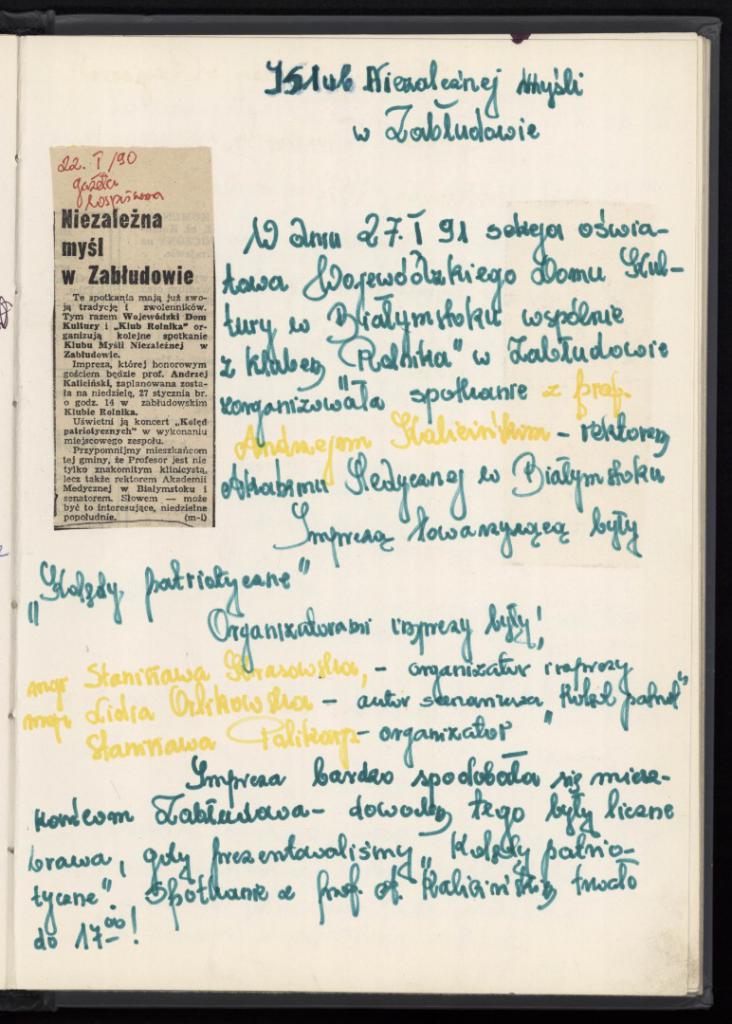 Klub Niezależnej Myśli
w Zabłudowie
22. I /90
gazeta
Niezależna
myśl
w Zabłudowie
Te spotkania mają już swo-
ją tradycję i zwolenników.
Tym razem Wojewódzki Dom
Kultury i „Klub Rolnika" or-
ganizują kolejne spotkanie
Klubu Myśli Niezależnej w
Zabłudowie.
Impreza, której honorowym
gościem będzie prof. Andrzej
Kaliciński, zaplanowana zosta-
ła na niedzielę, 27 stycznia br.
o godz. 14 w zabłudowskim
Klubie Rolnika.
Uświetni ją koncert „Kolęd
patriotycznych" w wykonaniu
miejscowego zespołu.
Przypomnijmy mieszkańcom
tej gminy, że Profesor jest nie
tylko znakomitym klinicystą,
lecz także rektorem Akademii
Medycznej w Białymstoku i
senatorem. Słowem — może
być to interesujące, niedzielne
popołudnie. (m-l)
W dniu 27. I 91 sekcja oświa-
towa Wojewódzkiego Domu Kul-
tury w Białymstoku wspólnie
z klubem "Rolnika" w Zabłudowie
zorganizowała spotkanie z prof.
Andrzejem Kalicińskim - rektorem
Akademii Medycznej w Białymstoku
Imprezą towarzyszącą były
„Kolędy patriotyczne"
Organizatorami imprezy były!
mgr Stanisława Korasowska, - organizator imprezy
mgr Lidia Orlikowska - autor scenariusza „Kolęd patriot"
Stanisława Polikarp - organizator
Impreza bardzo spodobała się miesz-
kańcom Zabłudowa - dowodem tego były liczne
brawa, gdy prezentowaliśmy „Kolędy patrio-
tyczne". Spotkanie z prof. A. Kalicińskim trwało
do 17.00!